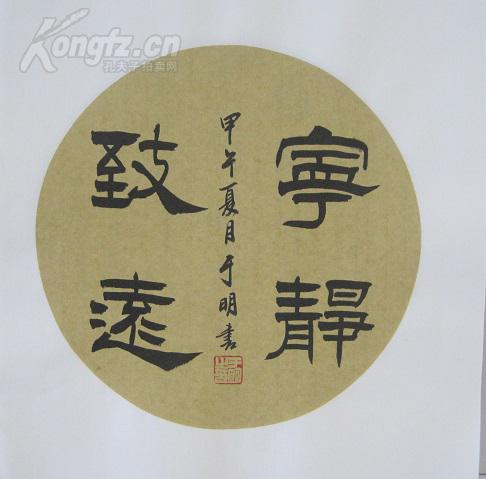 Kongfz.cn
孔夫子拍卖网
寧靜
致遠
甲午夏月于明書